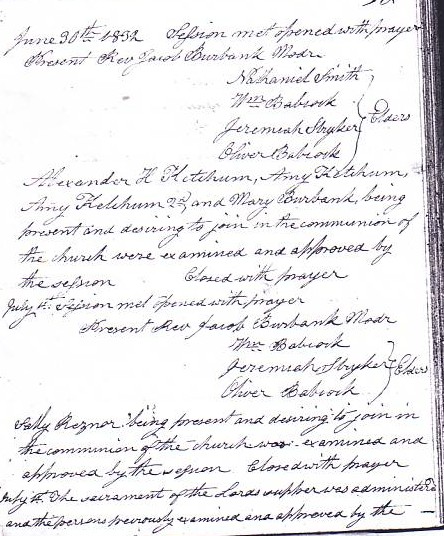 June 30th 1832 Session met opened with prayer
Present Rev Jacob Burbank Modr.
Nathaniel Smith
Wm Babcock
Jeremiah Stryker } Elders
Oliver Babcock
Alexander H Ketchum, Amy Ketchum,
Amy Ketchum 2d, and Mary Burbank, being
present and desiring to join in the communion of
the church were examined and approved by
the session Closed with prayer
July 1st Session met opened with prayer
Present Rev Jacob Burbank Modr
Wm Babcock
Jeremiah Stryker } Elders
Oliver Babcock
Sally Reznor being present and desiring to join in
the communion of the church was examined and
approved by the session Closed with prayer
July The sacrament of the Lords supper was administered
and the persons previously examined and approved by the